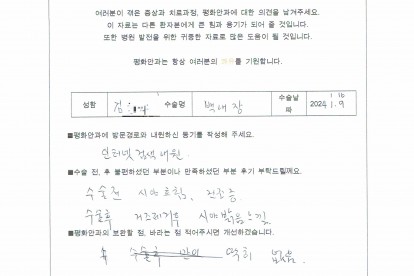 여러분이 겪은 증상과 치료과정, 평화안과에 대한 의견을 남겨주세요.
이 자료는 다른 환자분에게 큰 힘과 용기가 되어 줄 것입니다.
또한 병원 발전을 위한 귀중한 자료로 많은 도움이 될 것입니다.
평화안과는 항상 여러분의 쾌유를 기원합니다.
성함 수술명 백내장 수술날짜 2024. 1. 9
■평화안과에 방문경로와 내원하신 동기를 작성해 주세요.
인터넷 검색 내원
■수술 전, 후 불편하셨던 부분이나 만족하셨던 부분 후기 부탁드릴께요.
수술전 시야 흐림, 건조증
수술후 시야 밝음 느낌
■평화안과의 보완할 점, 바라는 점 적어주시면 개선하겠습니다.
특히 없음